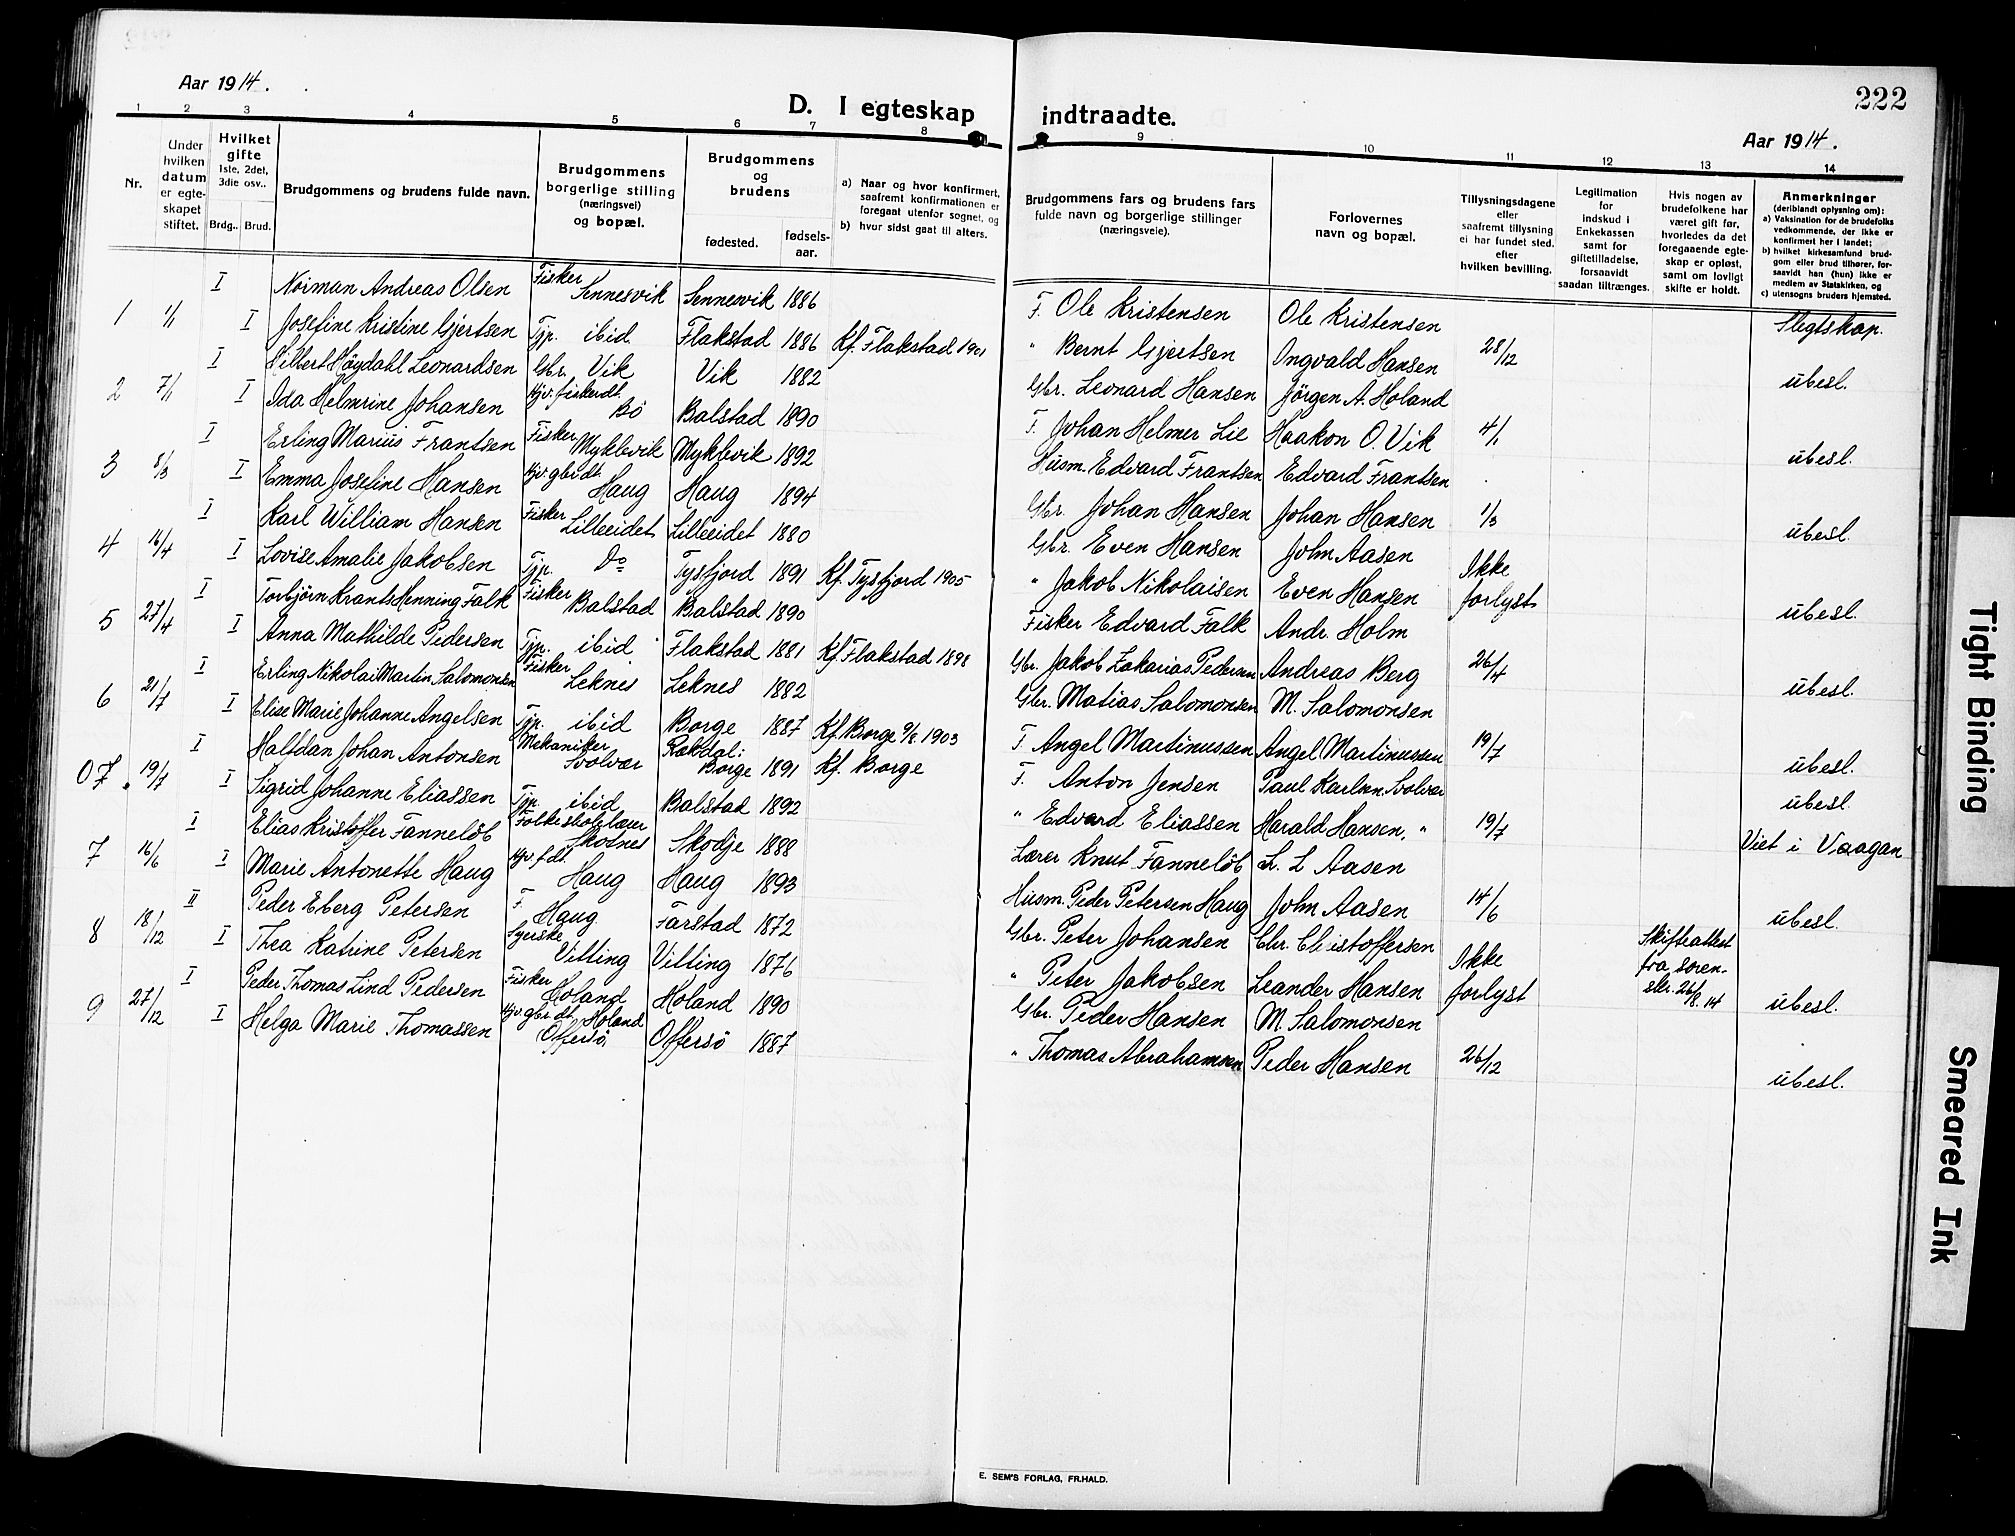 Aar 1914.
D. I egteskap indtraadte.
222
Aar 1914.
1 2 3 4 5 6 7 8 9 10 11 12 13 14
Nr.
Under hvilken datum er egteskapet stiftet.
Hvilket gifte 1ste, 2det, 3die osv..
Brdg.. Brud.
Brudgommens og brudens fulde navn.
Brudgommens borgerlige stilling (næringsvei) og bopæl.
Brudgommens og brudens
fødested. fødsels-aar.
a) Naar og hvor konfirmert, saafremt konfirmationen er foregaat utenfor sognet, og
b) hvor sidst gaat til alters.
Brudgommens fars og brudens fars fulde navn og borgerlige stillinger (næringsveie).
Forlovernes navn og bopæl.
Tillysningsdagene eller saafremt tillysning ei har fundet sted. efter hvilken bevilling.
Legitimation for indskud i Enkekassen samt for giftetilladelse, forsaavidt saadan tiltrænges.
Hvis nogen av brudefolkene har været gift før, hvorledes da det foregaaende egteskap er opløst, samt om lovligt skifte er holdt.
Anmerkninger (deriblandt oplysning om): a) Vaksination for de brudefolks vedkommende, der ikke er konfirmert her i landet; b) hvilket kirkesamfund brudgom eller brud tilhører, forsaavidt han (hun) ikke er medlem av Statskirken, og c) utensogns bruders hjemsted.
I Norman Andreas Olsen Fisker Sennesvik Sennesvik 1886 F. Ole Kristensen Ole Kristensen Slegtskap.
1 1/1 I Josefine Kristine Gjertsen Tjp. ibid. Flakstad 1886 Kf. Flakstad 1901 " Bernt Gjertsen Ongvald Hansen 28/12 ubesl.
I Hilbert Høydahl Leonardsen Gbr. Vik Vik 1882 Gbr. Leonard Hansen Jörgen A. Holand
2 7/1 I Ida Helmrine Johansen Hjv. fiskerdt. Bö Balstad 1890 F. Johan Helmer Lie Haakon O. Vik 4/1 ubesl.
I Erling Marius Frantsen Fisker Myklevik Myklevik 1892 Husm. Edvard Frantsen Edvard Frantsen
3 8/3 I Emma Josefine Hansen Hjv. gbr.dt. Haug Haug 1894 Gbr. Johan Hansen Johan Hansen 1/3 ubesl.
I Karl William Hansen Fisker Lilleeidet Lilleeidet 1880 Gbr. Even Hansen John Aasen Ikke
4 16/4 I Lovise Amalie Jakobsen Tjp. Do Tysfjord 1891 Kf. Tysfjord 1905 " Jakob Nikolaisen Even Hansen forlyst ubesl.
I Torbjörn Krants Henning Falk Fisker Balstad Balstad 1890 Fisker Edvard Falk Andr. Holm
5 27/4 I Anna Mathilde Pedersen Tjp. ibid Flakstad 1881 Kf. Flakstad 1898 Gbr. Jakob Zakarias Pedersen Andreas Berg 26/4 ubesl.
I Erling Nikolai Martin Salomonsen Fisker Leknes Leknes 1882 Gbr. Matias Salomonsen M. Salomonsen
6 21/7 I Elise Marie Johanne Angelsen Tjp. ibid Borge 1887 Kf. Borge 1903 F. Angel Martinussen Angel Martinussen 19/7 ubesl.
I Halfdan Johan Antonsen Mekaniker Svolvær Borge 1891 Kf. Borge F. Anton Jensen Paul Karlsen, Svolvær ubesl.
07. 19/7 I Sigrid Johanne Eliassen Tjp. ibid Balstad 1892 " Edvard Eliassen Harald Hansen, " 19/7 Viet i Vaagan
I Elias Kristoffer Fannelöb Folkeskolelærer Skotnes Skodje 1888 Lærer Knut Fannelöb L. L Aasen
7 16/6 I Marie Antonette Haug Hjv. f.dt. Haug Haug 1893 Husm. Peder Petersen Haug John Aasen 14/6 ubesl.
II Peder Eberg Petersen F. Haug Farstad 1872 Gbr. Peter Johansen Chr. Christoffersen Ikke Skifteattest fra soren-skr. 26/8. 14
8 18/12 I Thea Katrine Petersen Syerske Vitting Vitting 1876 " Peter Jakobsen Leander Hansen forlyst ubesl.
I Peder Thomas Lind Pedersen Fisker Holand Holand 1890 Gbr. Peder Hansen M. Salomonsen
9 27/12 I Helga Marie Thomassen Hjv. gbr.dt. Holand Offersö Offersö 1887 " Thomas Abrahamsen Peder Hansen 26/12 ubesl.
E. SEM'S FORLAG, FR.HALD.
Tight Binding
Smeared Ink